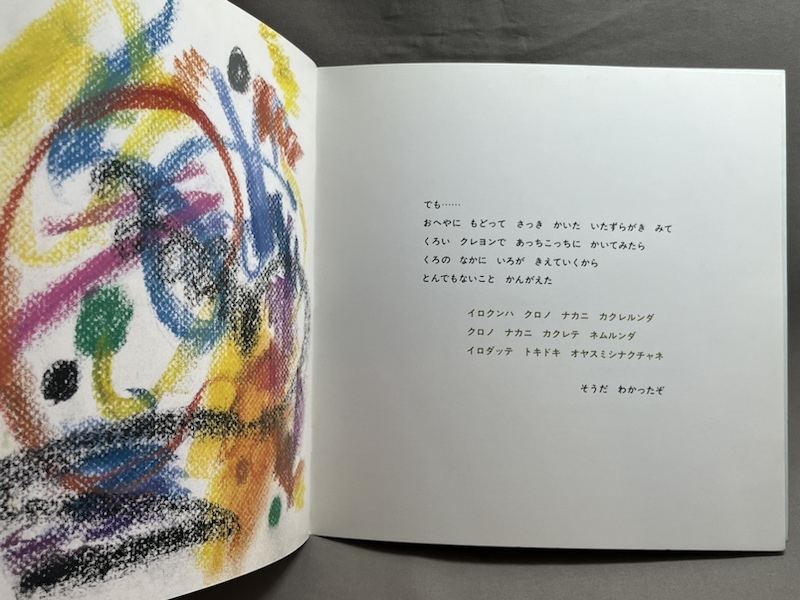 でも……
おへやに　もどって　さっき　かいた　いたずらがき　みて
くろい　クレヨンで　あっちこっちに　かいてみたら
くろの　なかに　いろが　きえていくから
とんでもないこと　かんがえた
イロクンハ　クロノ　ナカニ　カクレルンダ
クロノ　ナカニ　カクレテ　ネムルンダ
イロダッテ　トキドキ　オヤスミシナクチャネ
そうだ　わかったぞ